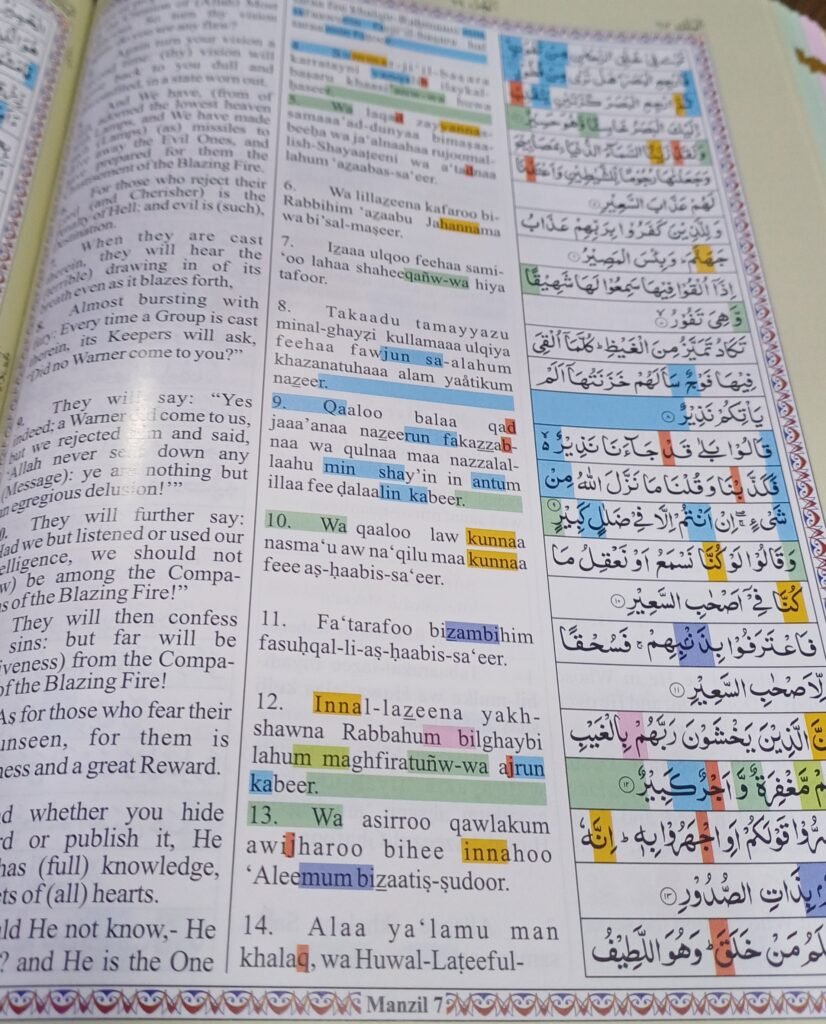 Again turn your vision a
second time: (thy) vision will
back to you dull and
in a state worn out.
And We have, (from of
adorned the lowest heaven
Lamps, and We have made
(Lamps) (as) missiles to
away the Evil Ones, and
prepared for them the
of the Blazing Fire.
For those who reject their
(and Cherisher) is the
of Hell: and evil is (such),
When they are cast
therein, they will hear the
(terrible) drawing in of its
breath even as it blazes forth,
8. Almost bursting with
fury: Every time a Group is cast
therein, its Keepers will ask,
"Did no Warner come to you?"
9. They will say: "Yes
indeed; a Warner did come to us,
but we rejected him and said,
'Allah never sent down any
(Message): ye are nothing but
an egregious delusion!'"
They will further say:
"Had we but listened or used our
intelligence, we should not
be among the Compa-
of the Blazing Fire!"
They will then confess
sins: but far will be
from the Compa-
of the Blazing Fire!
As for those who fear their
unseen, for them is
and a great Reward.
whether you hide
or publish it, He
has (full) knowledge,
of (all) hearts.
He not know,- He
? and He is the One
karratayni yanqalib ilaykal-
basaru khaasi'anw-wa huwa
baseer.
5. Wa laqad zayyannas-
samaaa'ad-dunyaa bimaṣaa-
beeḥa wa ja'alnaahaa rujoomal-
lish-Shayaaṭeeni wa a'tadnaa
lahum 'azaabas-sa'eer.
6. Wa lillazeena kafaroo bi-
Rabbihim 'azaabu Jahannama
wa bi'sal-maṣeer.
7. Izaaa ulqoo feehaa sami-
'oo lahaa shaheeqañw-wa hiya
tafoor.
8. Takaadu tamayyazu
minal-ghayẓi kullamaaa ulqiya
feehaa fawjun sa-alahum
khazanatuhaaa alam yaåtikum
nazeer.
9. Qaaloo balaa qad
jaaa'anaa nazeerun fakazzab-
naa wa qulnaa maa nazzalal-
laahu min shay'in in antum
illaa fee ḍalaalin kabeer.
10. Wa qaaloo law kunnaa
nasma'u aw na'qilu maa kunnaa
feee aṣ-ḥaabis-sa'eer.
11. Fa'tarafoo bizambihim
fasuḥqal-li-aṣ-ḥaabis-sa'eer.
12. Innal-lazeena yakh-
shawna Rabbahum bilghaybi
lahum maghfiratuñw-wa ajrun
kabeer.
13. Wa asirroo qawlakum
awijharoo bihee innahoo
'Aleemum bizaatiṣ-ṣudoor.
14. Alaa ya'lamu man
khalaq, wa Huwal-Laṭeeful-
اِلَيْكَ الْبَصَرُ خَاسِئًا وَّهُوَ حَسِيْرٌ
وَلَقَدْ زَيَّنَّا السَّمَآءَ الدُّنْيَا بِمَصَابِيْحَ
وَجَعَلْنٰهَا رُجُوْمًا لِّلشَّيٰطِيْنِ وَاَعْتَدْنَا
لَهُمْ عَذَابَ السَّعِيْرِ
وَلِلَّذِيْنَ كَفَرُوْا بِرَبِّهِمْ عَذَابُ
جَهَنَّمَ ؕ وَبِئْسَ الْمَصِيْرُ
اِذَآ اُلْقُوْا فِيْهَا سَمِعُوْا لَهَا شَهِيْقًا
وَّهِيَ تَفُوْرُ ۙ‏۷
تَكَادُ تَمَيَّزُ مِنَ الْغَيْظِ ؕ كُلَّمَآ اُلْقِيَ
فِيْهَا فَوْجٌ سَاَلَهُمْ خَزَنَتُهَآ اَلَمْ
يَاْتِكُمْ نَذِيْرٌ ۸
قَالُوْا بَلٰى قَدْ جَآءَنَا نَذِيْرٌ ۙ
فَكَذَّبْنَا وَقُلْنَا مَا نَزَّلَ اللّٰهُ مِنْ
شَيْءٍ ۖۚ اِنْ اَنْتُمْ اِلَّا فِيْ ضَلٰلٍ كَبِيْرٍ ۹
وَقَالُوْا لَوْ كُنَّا نَسْمَعُ اَوْ نَعْقِلُ مَا
كُنَّا فِيْٓ اَصْحٰبِ السَّعِيْرِ ۱۰
فَاعْتَرَفُوْا بِذَنْۢبِهِمْ ۚ فَسُحْقًا
لِّاَصْحٰبِ السَّعِيْرِ ۱۱
الَّذِيْنَ يَخْشَوْنَ رَبَّهُمْ بِالْغَيْبِ
مَّغْفِرَةٌ وَّاَجْرٌ كَبِيْرٌ ۱۲
قَوْلَكُمْ اَوِ اجْهَرُوْا بِهٖ ؕ اِنَّهٗ
بِذَاتِ الصُّدُوْرِ ۱۳
مَنْ خَلَقَ ؕ وَهُوَ اللَّطِيْفُ
Manzil 7